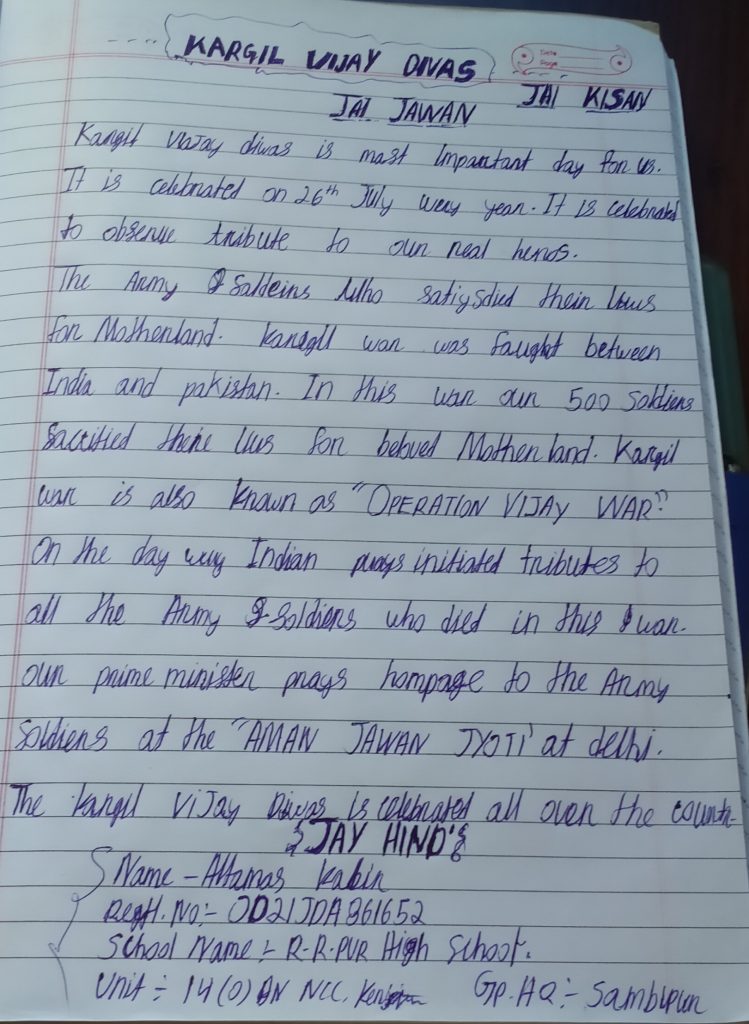 KARGIL VIJAY DIVAS
JAI JAWAN JAI KISAN
Kargil Viajay diwas is mast Impartant day for us.
It is celebrated on 26th July very year. It is celebrated
to obserue tribute to our real heros.
The Army Saldeirs Who their
for Motherland. Karagil war was faught between
India and pakistan. In this war our 500 Soldiers
Sacrified there for beloved Motherland. Kargil
war is also known as "OPERATION VIJAY WAR"
On the day Indian prays initiated tributes to
all the Army Soldiers who died in this war.
our prime minister prays hompage to the Army
Soldiers at the "AMAN JAWAN JYOTI" at delhi.
The kargil ViJay Diwas is celebrated all over the
JAY HIND
Name - Altamas Kabir
Regtl. No:- OD21JDA861652
School Name :- R-R-PUR High School.
Unit :- 14(O) BN NCC, Gp. HQ:- Sambpur